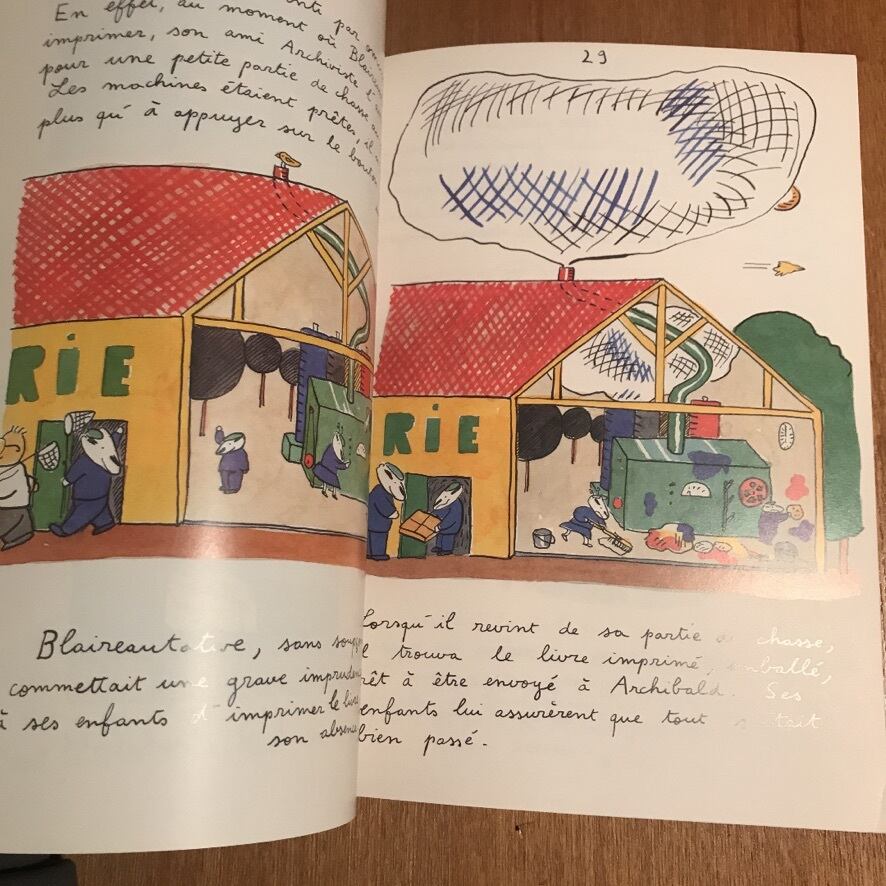 En effet, au moment où
imprimer, son ami Archiviste
pour une petite partie de chasse
Les machines étaient prêtes, il
plus qu'à appuyer sur le bouton
RiE
Blaireautative, sans
commettait une grave
à ses enfants d'imprimer le livre
son absence
29
RiE
Lorsqu'il revint de sa partie de chasse,
il trouva le livre imprimé, emballé,
prêt à être envoyé à Archibald. Ses
enfants lui assurèrent que tout s'était
bien passé.